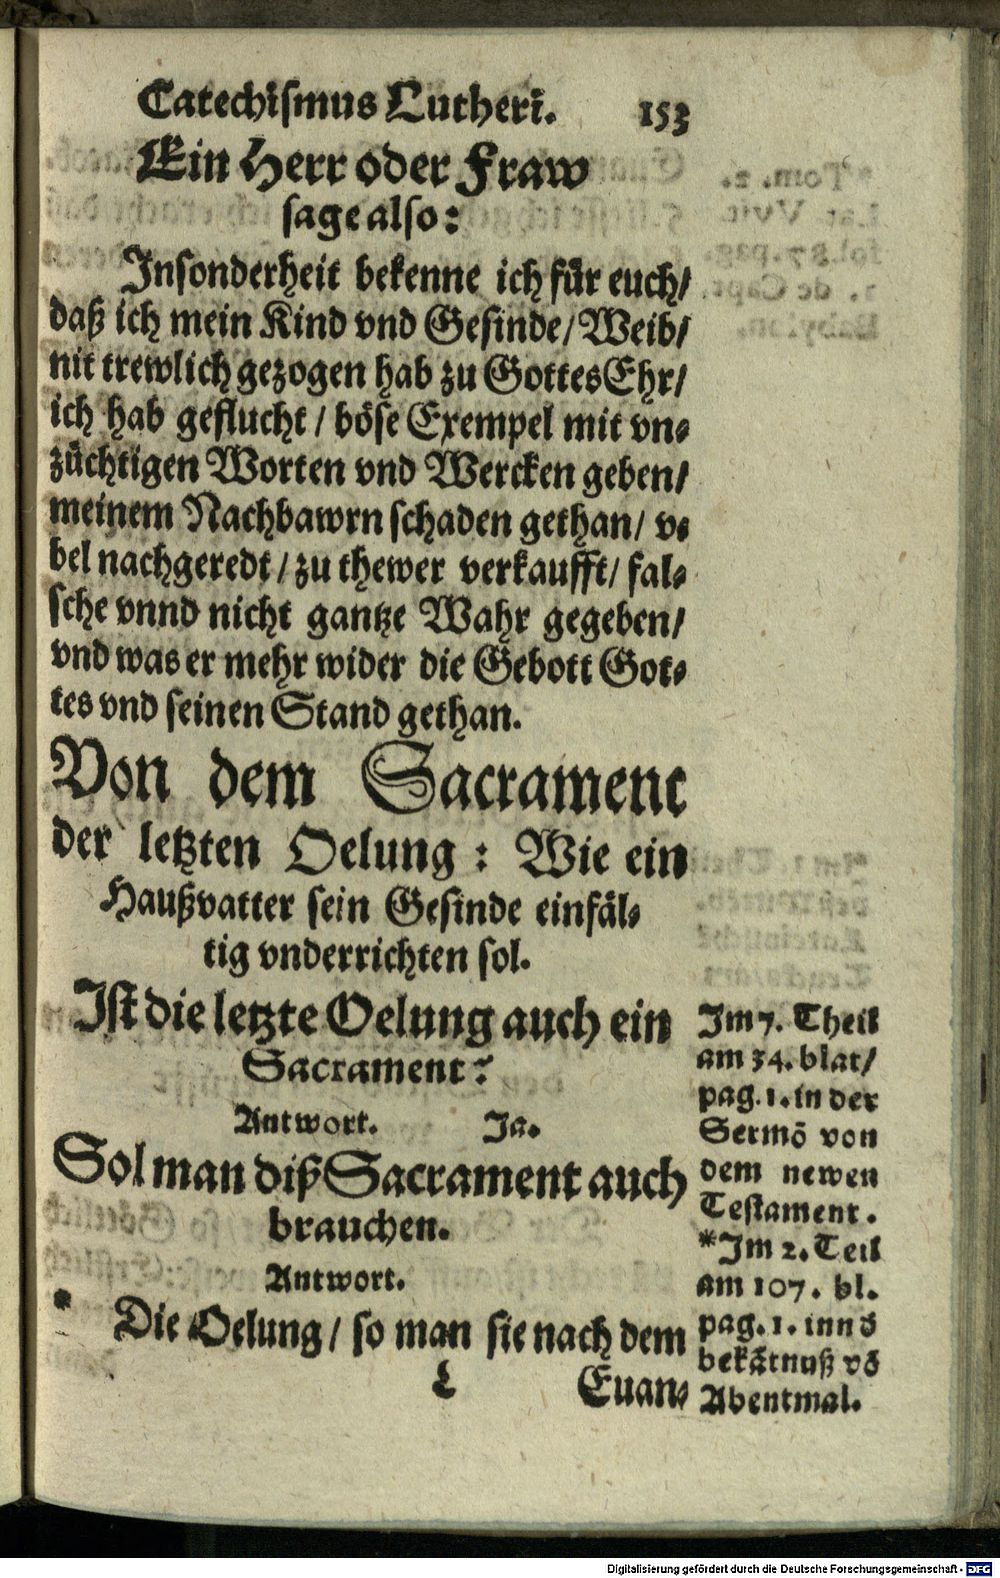 Catechismus Lutheri. 153
Ein Herr oder Fraw
sage also:
Jnsonderheit bekenne ich für euch/
daß ich mein Kind vnd Gesinde/ Weib/
nit trewlich gezogen hab zu Gottes Ehr/
ich hab geflucht/ böse Exempel mit vn-
züchtigen Worten vnd Wercken geben/
meinem Nachbawrn schaden gethan/ v-
bel nachgeredt/ zu thewer verkaufft/ fal-
sche vnnd nicht gantze Wahr gegeben/
vnd was er mehr wider die Gebott Got-
tes vnd seinen Stand gethan.
Von dem Sacrament
der letzten Oelung: Wie ein
Haußvatter sein Gesinde einfäl-
tig vnderrichten sol.
Jst die letzte Oelung auch ein
Sacrament?
Antwort. Ja.
Sol man diß Sacrament auch
brauchen.
Antwort.
* Die Oelung/ so man sie nach dem
L Euan-
Jm 7. Theil
am 34. blat/
pag. 1. in der
Sermō von
dem newen
Testament.
*Jm 2. Teil
am 107. bl.
pag. 1. inn d̄
bekātnuß vō
Abentmal.
Digitalisierung gefördert durch die Deutsche Forschungsgemeinschaft - DFG